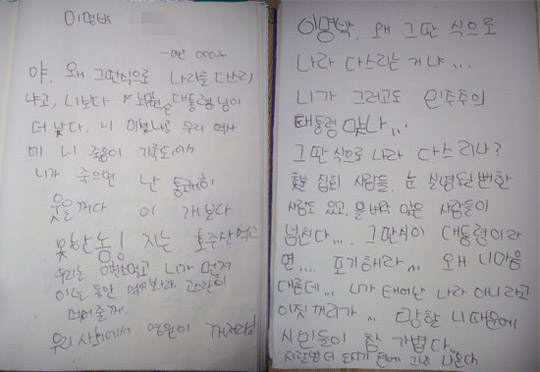 이명박
야. 왜 그딴식으로 나라를 다스리
냐고, 니보다 노무현 대통령님이
더 낫다. 니 미련나로 우리 역사
에 니 죽음이 기록도
니가 죽으면 난 통쾌히
웃을꺼다 이 개보다
못한놈! 지는 호주산먹고
우리는 미친소먹고 니가 먼저
이년 동안 먹어봐라
우리 사회에서 영원이 꺼저라
이명박. 왜 그딴 식으로
나라 다스리는 거냐...
니가 그러고도 민주주의
대통령 맞나...
그딴식으로 나라 다스리나?
촛불 집회 사람들. 눈 실명될뻔한
사람도 있고, 물벼락 맞은 사람들이
넘친다... 그딴식이 대통령이라
면.... 포기해라... 왜 니마음
대론데... 니가 태어난 나라 아니라고
이짓꺼리가 ... 망할 니때문에
시민들이 참 가볍다...
사람명 더 다치기 전에 그냥